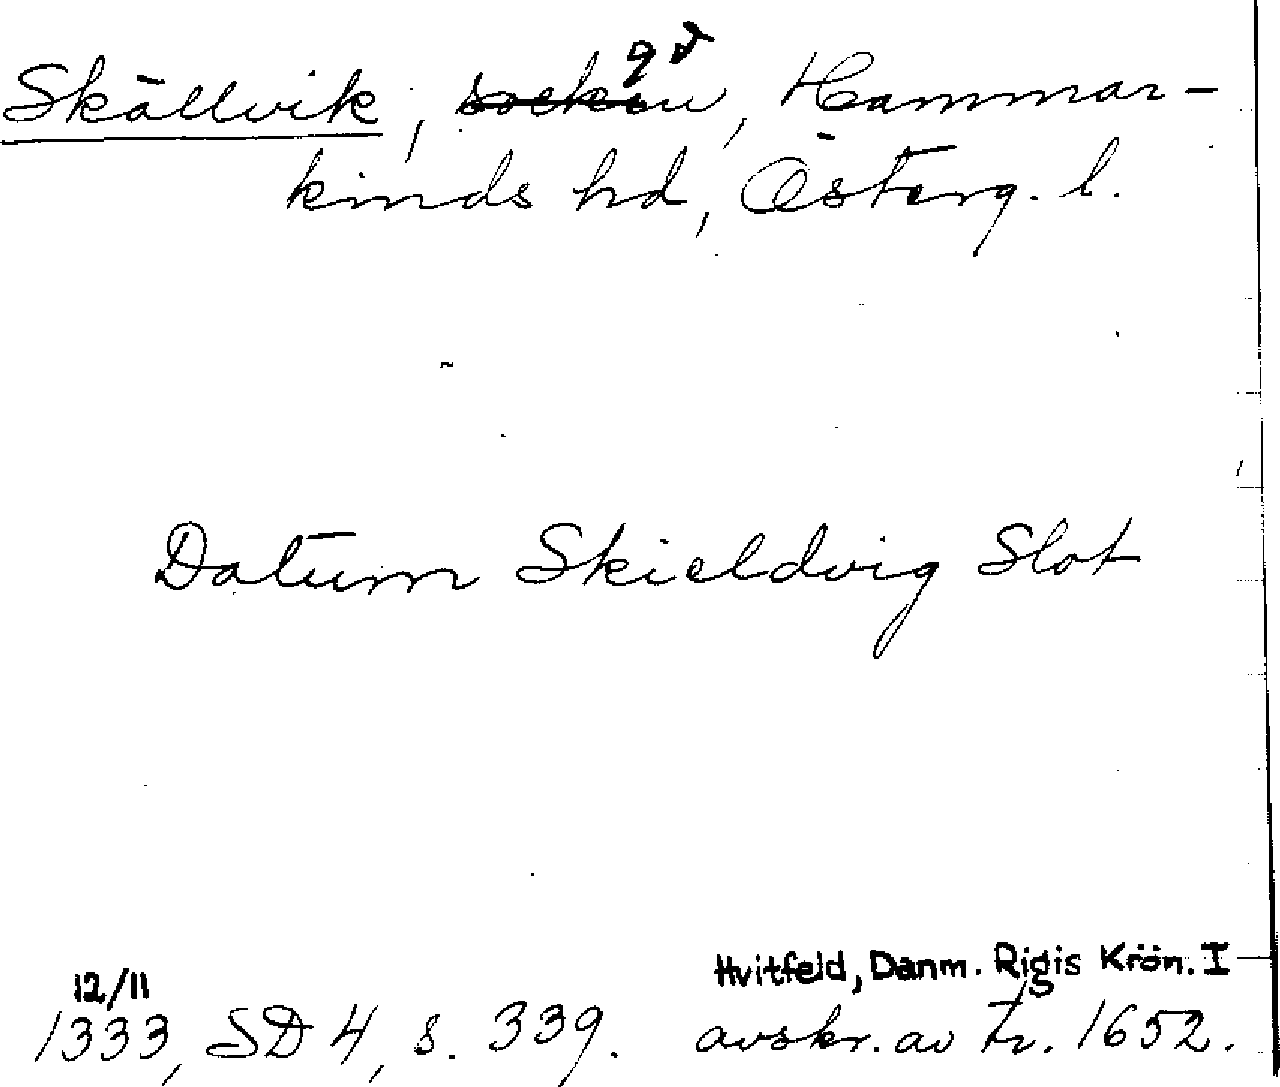 Skällvik, socken gd, Hammar-
kinds hd, Österg. l.
Datum Skieldvig Slot
12/11
1333, SD 4, s. 339.
Hvitfeld, Danm. Rigis Krön. I
avskr. av tr. 1652.